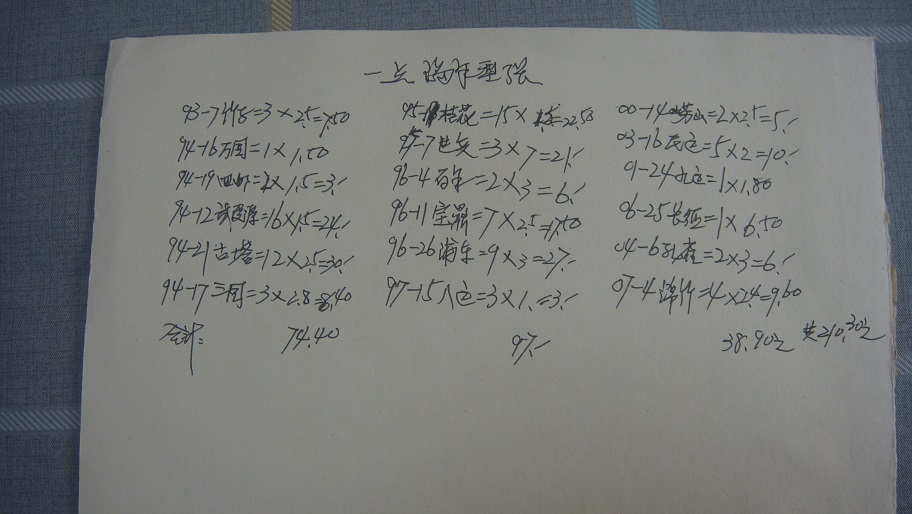 一点瑕疵型张
93-7竹子=3×2.5=7.50
94-16万国=1×1.50
94-19四邮=2×1.5=3.-
94-12武陵源=16×1.5=24.-
94-21古塔=12×2.5=30.-
94-17三国=3×2.8=8.40
合计: 74.40
桂花=15× =22.50
95-7 =3×7=21.-
96-4百年=2×3=6.-
96-11宝鼎=7×2.5=17.50
96-26海车=9×3=27.-
97-15八运=3×1.=3.-
97.-
00-14崂山=2×2.5=5.-
03-16 =5×2=10.-
01-24九运=1×1.80
06-25长征=1×6.50
04-6孔雀=2×3=6.-
07-4绵竹=4×2.4=9.60
38.90元 共210.30元